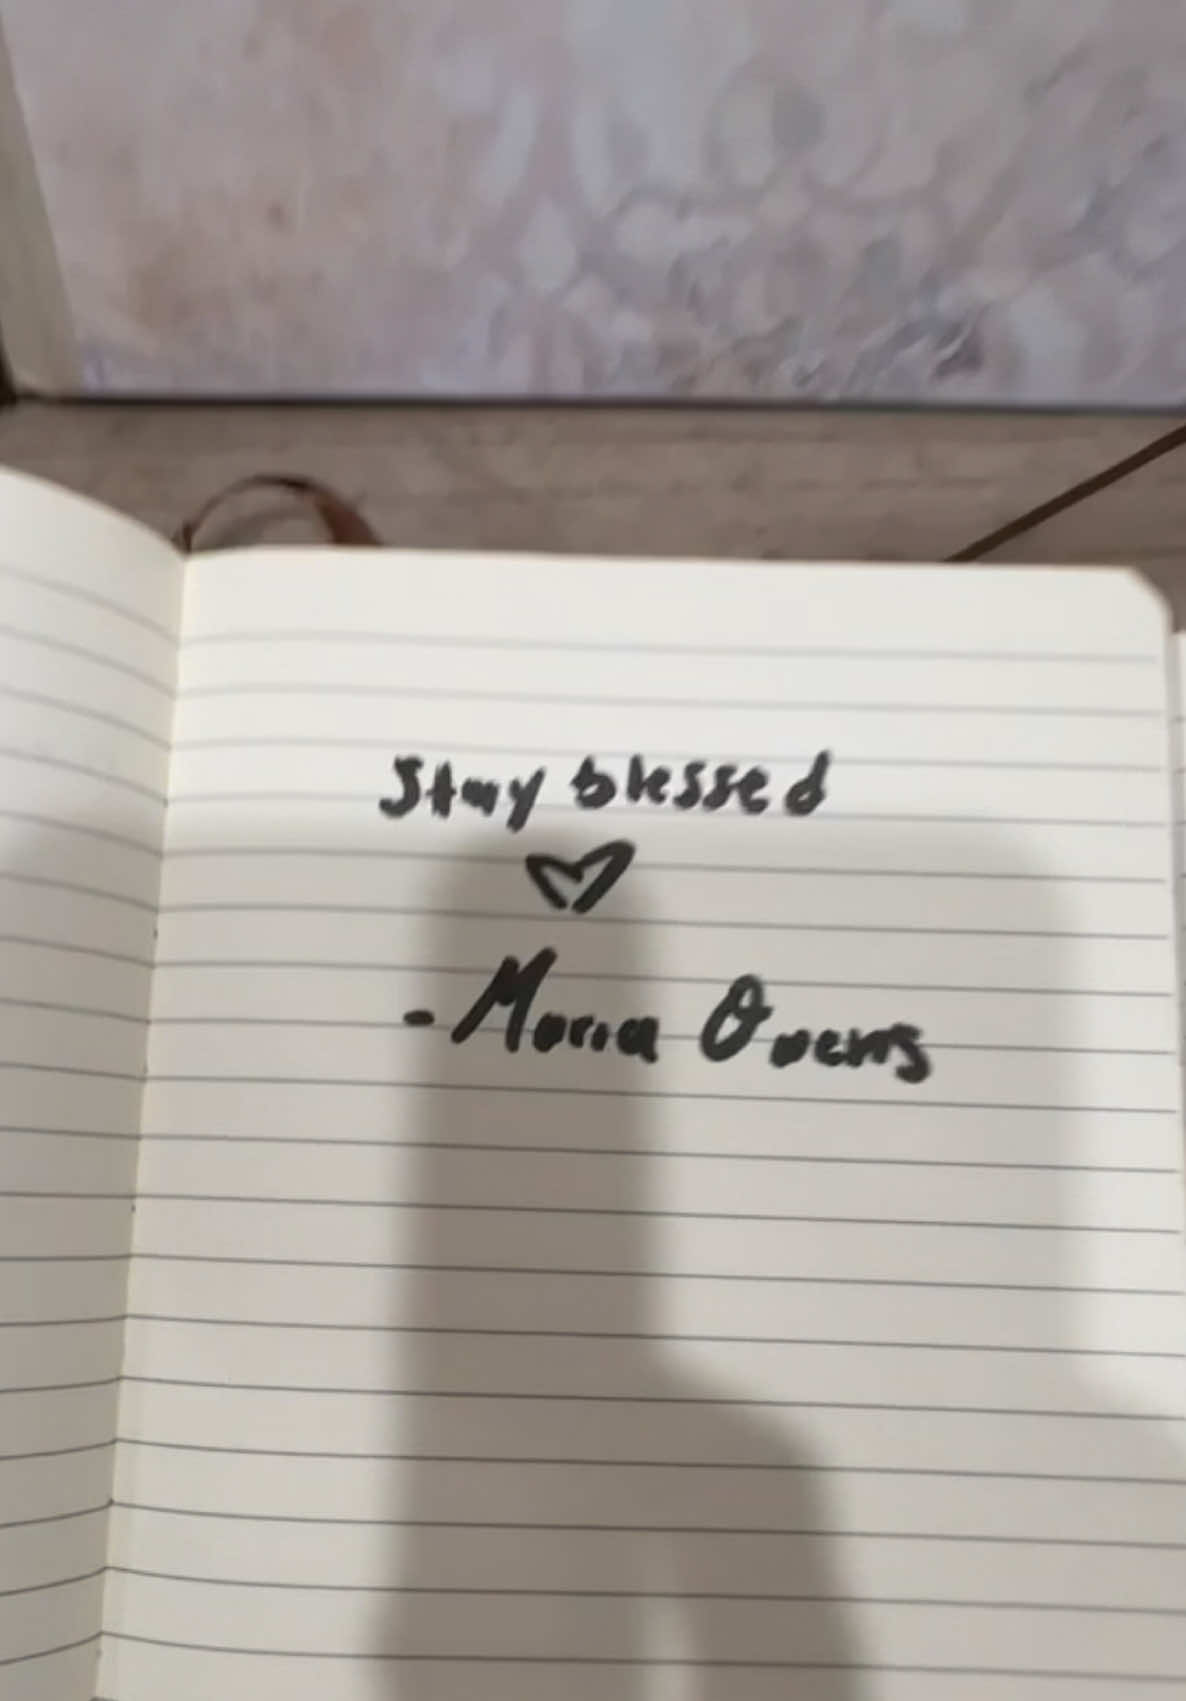 Stay blessed
♡
- Maria Owens